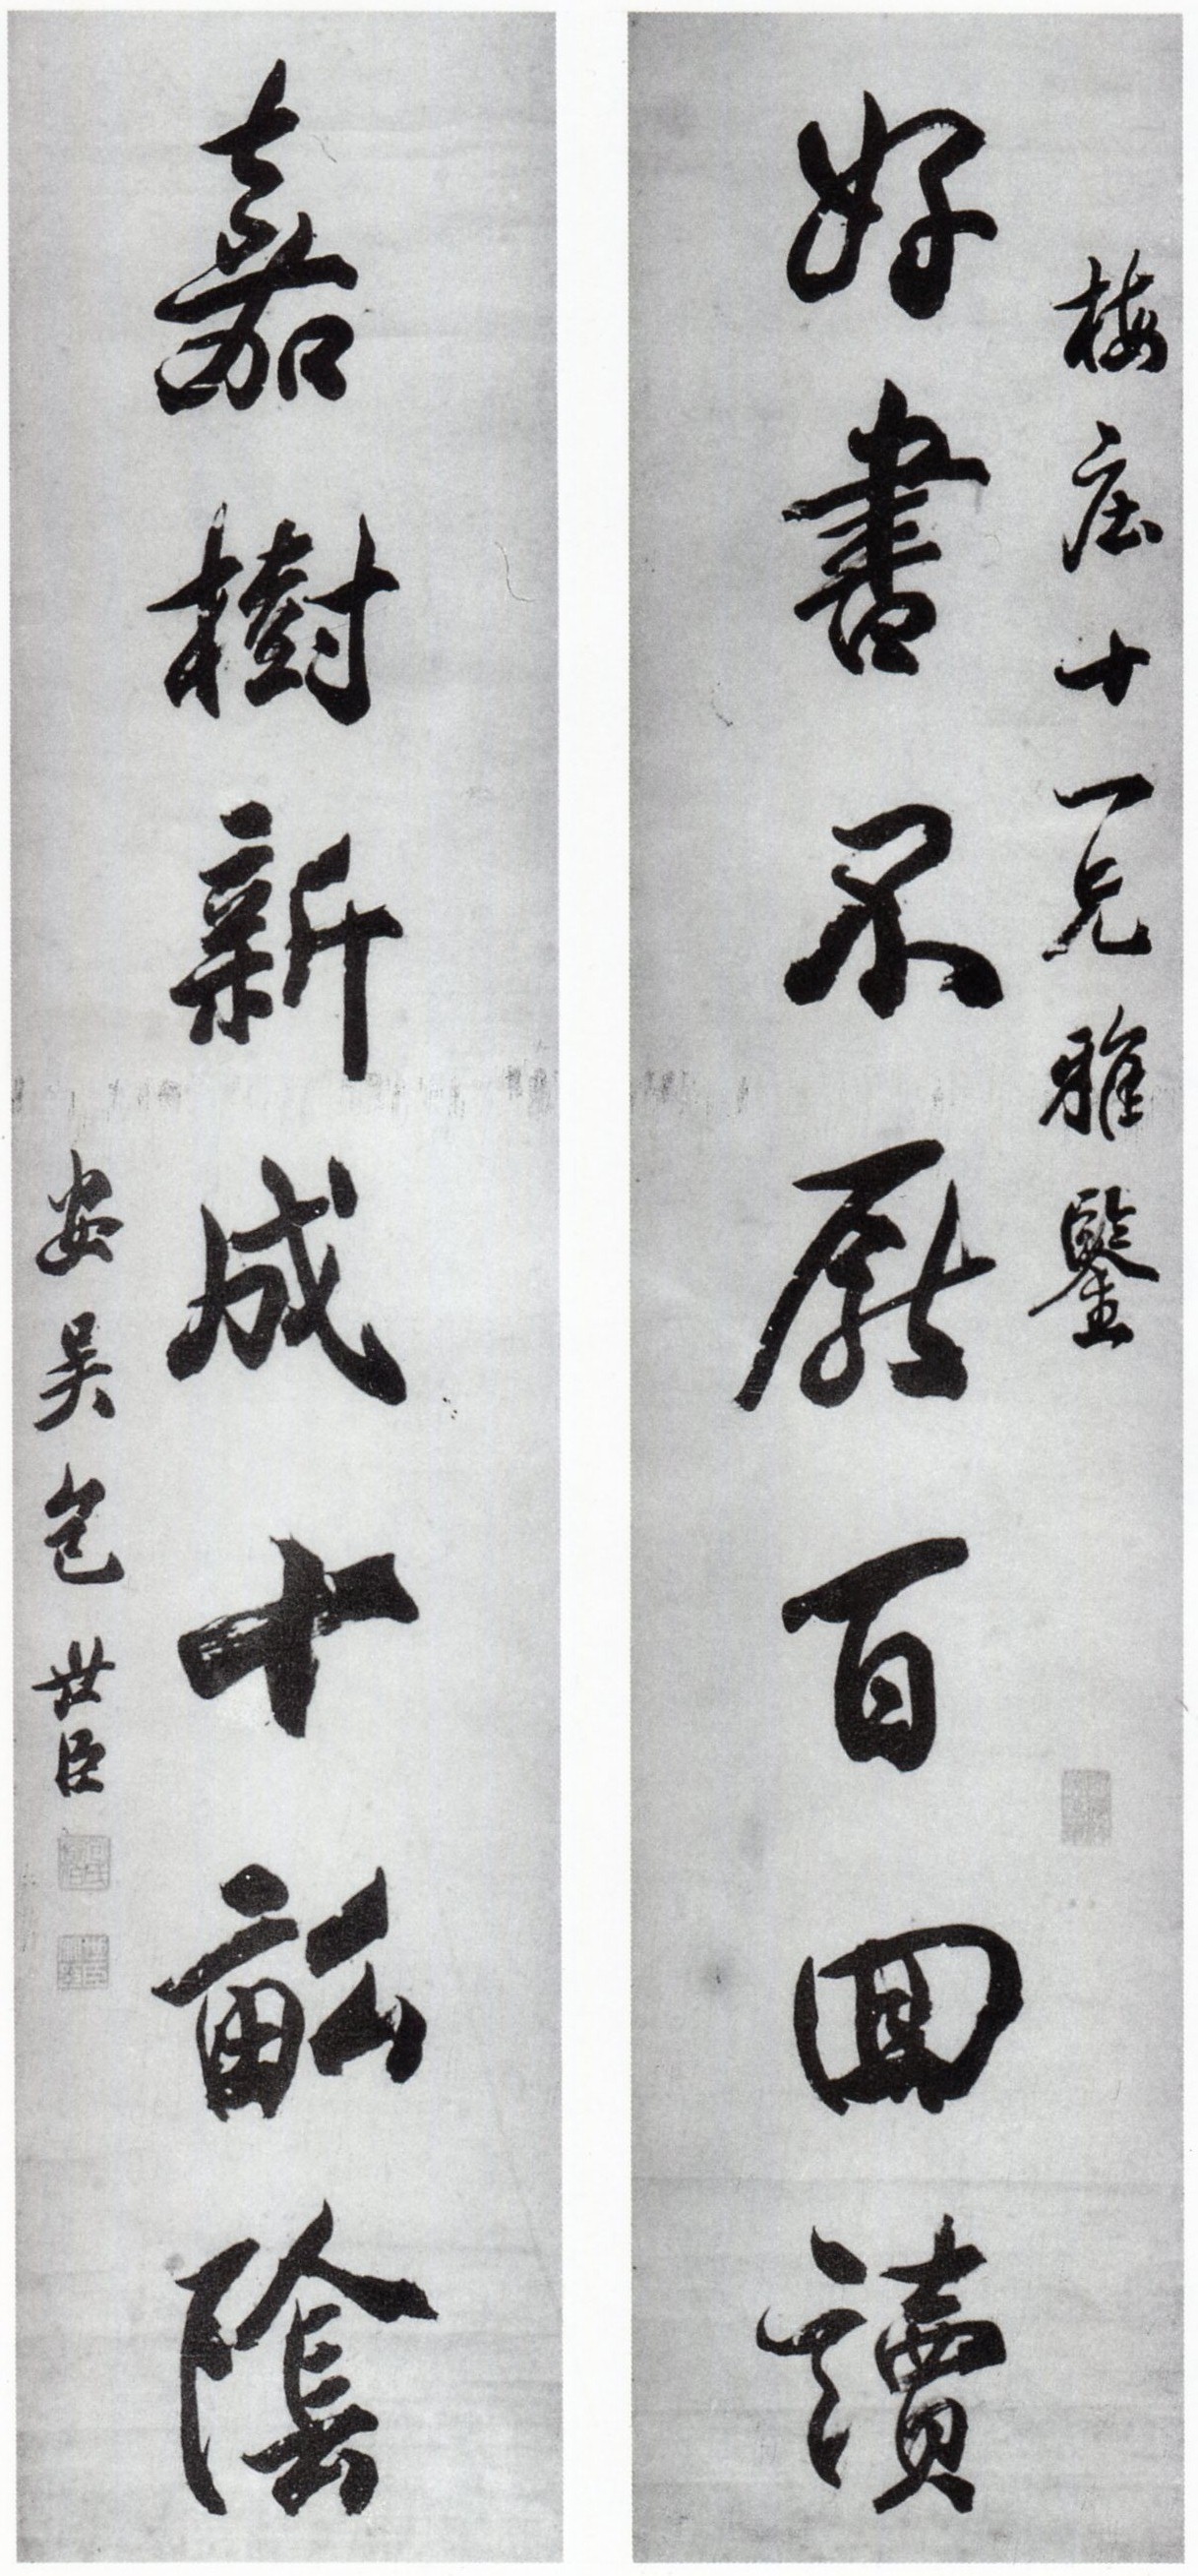 梅庄十一兄雅鑒
好書不厭百回讀
嘉樹新成十畝陰
安吳包世臣